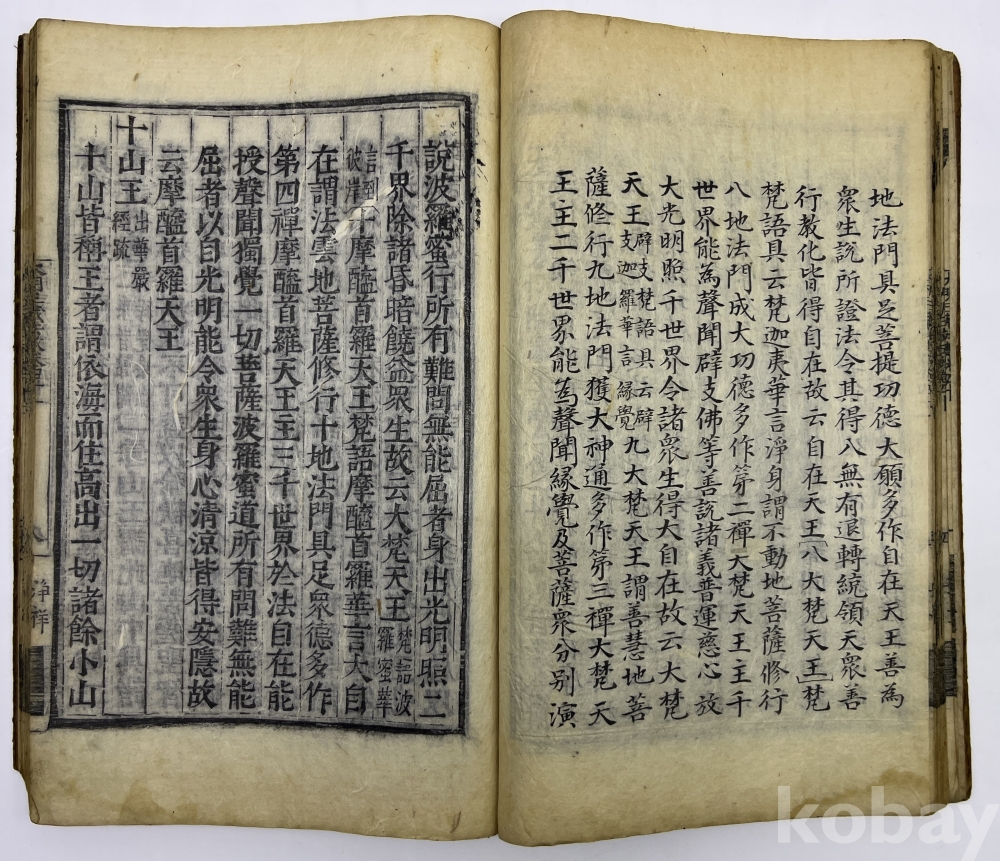 地法門具足菩提功德大願多作自在天王善為
衆生說所證法令其得入無有退轉統領天衆善
行教化皆得自在故云自在天王八大梵天王梵
梵語具云梵迦夷華言淨身謂不動地菩薩修行
八地法門成大功德多作第二禪大梵天王主千
世界能為聲聞辟支佛等善說諸義普運慈心放
大光明照千世界令諸衆生得大自在故云大梵
天王辟支梵語具云辟支迦羅華言緣覺九大梵天王謂善慧地菩
薩修行九地法門獲大神通多作第三禪大梵天
王主二千世界能為聲聞緣覺及菩薩衆分別演
說波羅蜜行所有難問無能屈者身出光明照二
千界除諸昏暗饒益衆生故云大梵天王梵語波羅蜜華
言到彼岸十摩醯首羅天王梵語摩醯首羅華言大自
在謂法雲地菩薩修行十地法門具足衆德多作
第四禪摩醯首羅天王主三千世界於法自在能
授聲聞獨覺一切菩薩波羅蜜道所有問難無能
屈者以自光明能令衆生身心清涼皆得安隱故
云摩醯首羅天王
十山王出華嚴經疏
十山皆稱王者謂依海而住高出一切諸餘小山
淨祥
kobay